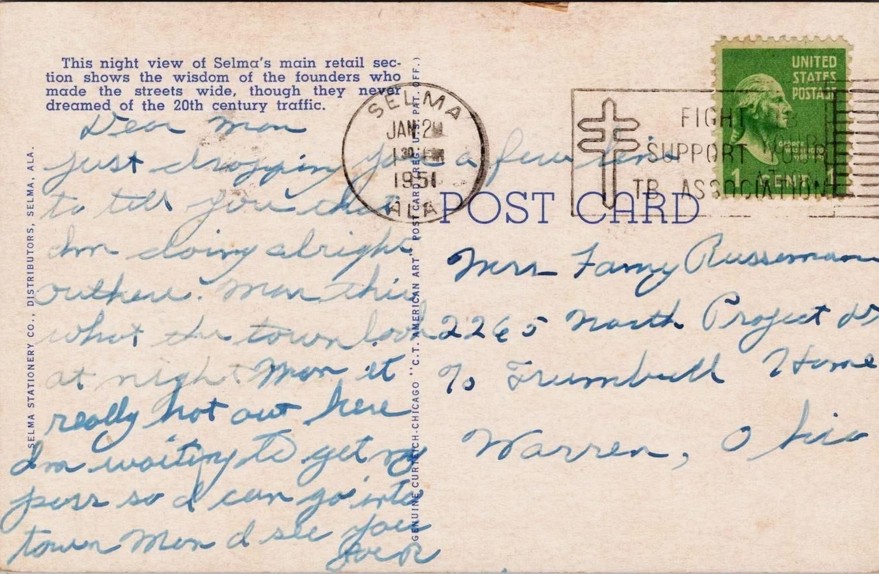 This night view of Selma's main retail sec-
tion shows the wisdom of the founders who
made the streets wide, though they never
dreamed of the 20th century traffic.
Dear Mom
just dropping you a few line
to tell you that
Im doing alright
outhere. Mom this
what the town look
at night Mom it
really hot out here
Im waiting to get my
pass so I can go into
town Mom I see you
over
SELMA STATIONERY CO., DISTRIBUTORS, SELMA, ALA.
GENUINE CURTEICH-CHICAGO "C.T. AMERICAN ART" POST CARD (REG. U.S. PAT. OFF.)
SELMA
JAN 2
1951
ALA.
FIGHT
SUPPORT YOUR
TB ASSOCIATION
UNITED
STATES
POSTAGE
1 CENT 1
POST CARD
Mrs Fanny Russeman
2265 North Project
c/o Trumbull Home
Warren, Ohio